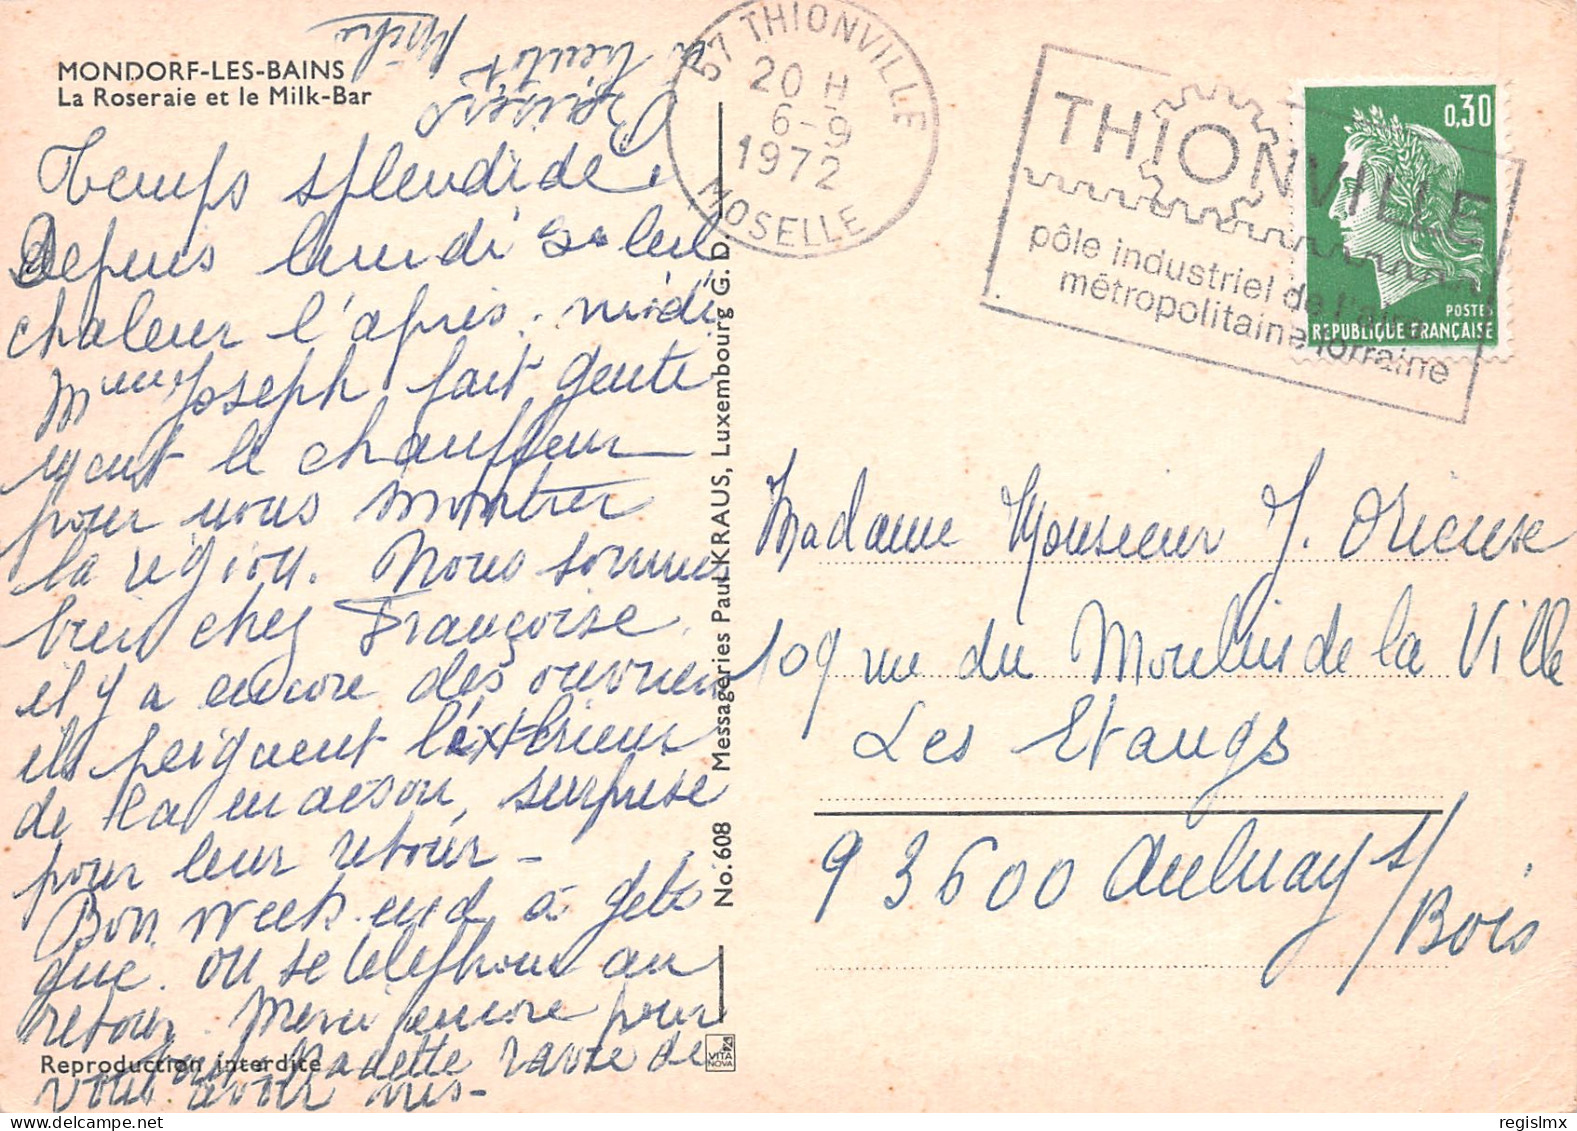 MONDORF-LES-BAINS
La Roseraie et le Milk-Bar
Temps splendide.
Depuis lundi soleil
chaleur l'après-midi
Mme Joseph fait genti
ment le chauffeur
pour nous montrer
la région. Nous sommes
bien chez Françoise.
il y a encore des ouvriers
ils peignent l'extérieur
de la maison, surprise
pour leur retour -
Bon week-end à
que. on se téléphone au
retour. Merci encore pour
tout. Nadette ravie de
vous avoir vus -
Baisers
à bientôt
Reproduction interdite
No. 608 Messageries Paul KRAUS, Luxembourg G. D.
VITA NOVA
57 THIONVILLE
20 H
6-9
1972
MOSELLE
THIONVILLE
pôle industriel de l'aire
métropolitaine lorraine
0,30
POSTES
REPUBLIQUE FRANÇAISE
Madame Monsieur J. Orieuse
109 rue du Moulin de la Ville
Les Etangs
93600 Aulnay s/
Bois
regislmx